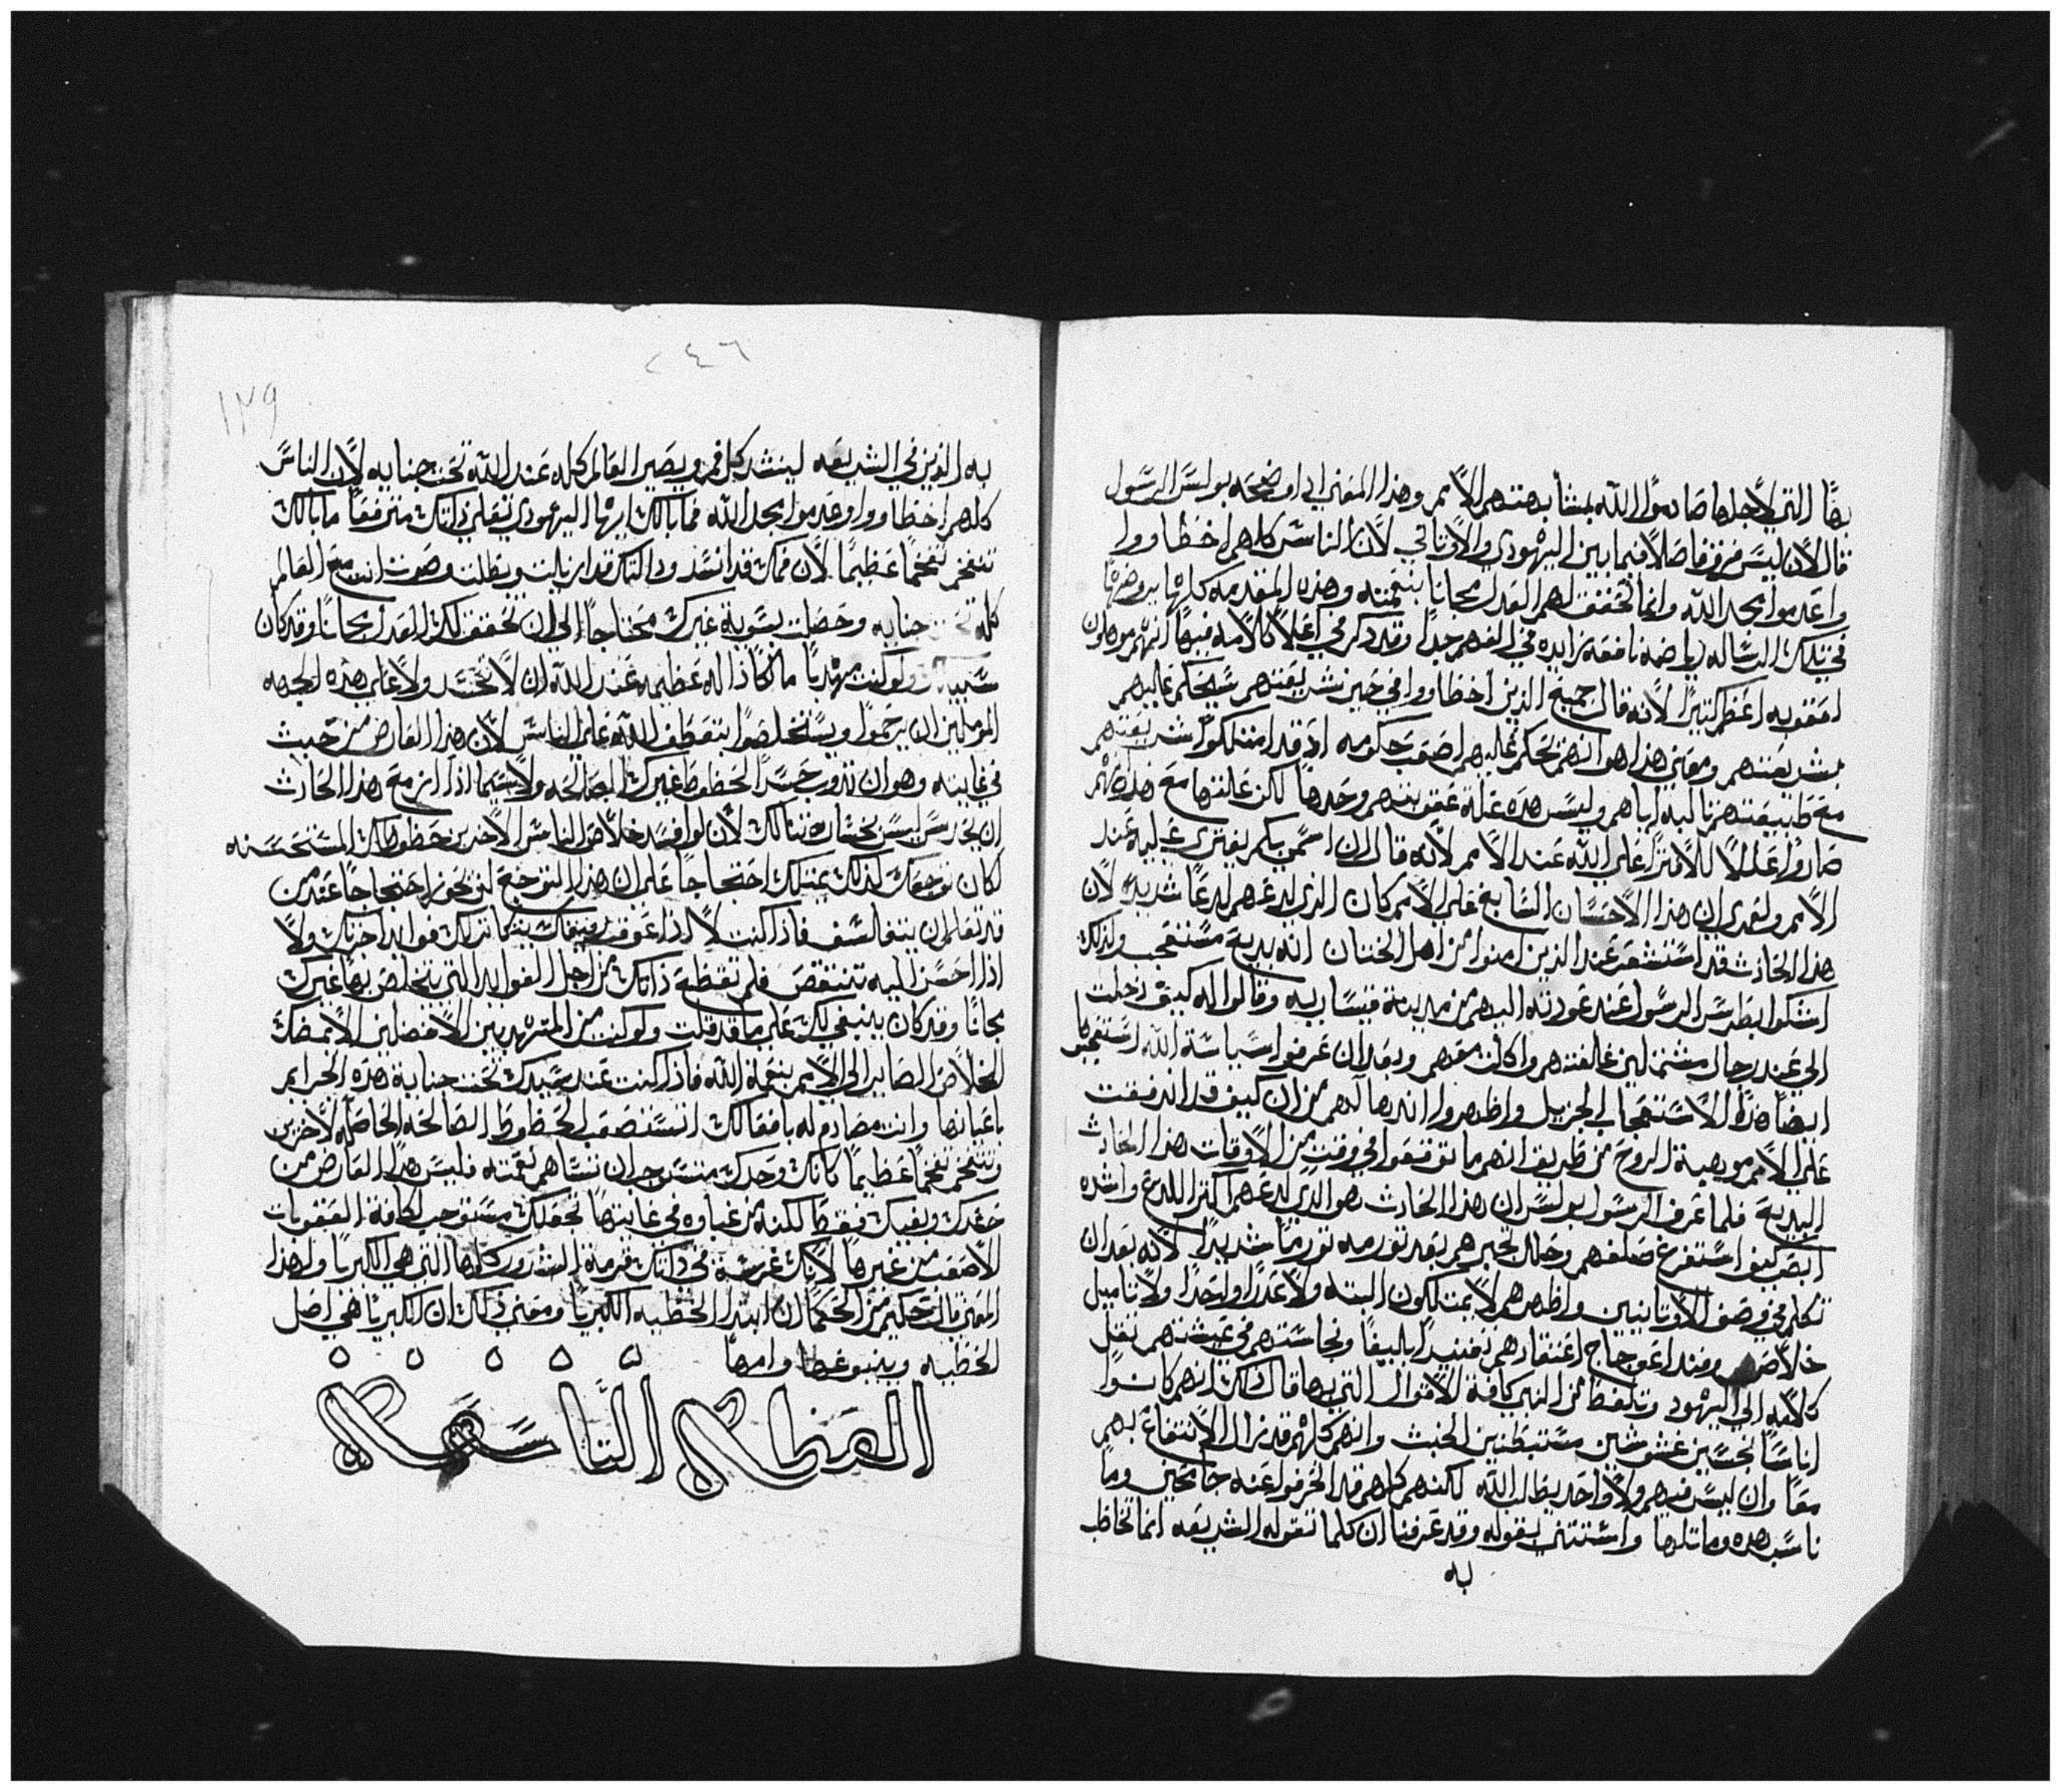 بها التي لاجلها صادموا الله بمشابهتهم الامم وهذا المعني اذ اوضحه بولس الرسول
قال الان ليس فرق فاصلا فيما بين اليهودي والاوناني لان الناس كلهم اخطا ووا
واعدموا مجد الله وانما تحقق لهم العدل مجانا بنعمته وهذه المقدمه كلها يروضها
في تلك الرساله رياضه نافعه زايده في الفهم جدا وقد ذكر في اعلا كلامه فيها انهم موهلون
لعقوبه اعظم كثيرا لانه قال جميع الذين اخطا ووا في حين شريعتهم سيحكم عليهم
بشريعتهم ومعني هذا هو انهم يحكم عليهم اصعب حكومه اذ قد امتلكوا شريعتهم
مع طبيعتهم ثالبه اياهم وليس هذه علة عقوبتهم وحدها لكن علتها مع هذه انهم
صاروا عللا للافترا علي الله عند الامم لانه قال ان اسمي بكم يفتري عليه عند
الامم ولعمري ان هذا الاحسان السابغ علي الامم كان الذي لدعهم لدعا شديدا لان
هذا الحادث قد استشعر عند الذين امنوا من اهل الختان انه بديع مستعجب ولذلك
اشتكوا بطرس الرسول عند عودته اليهم من مدينة قيساريه وقالوا له كيف دخلت
الي عند رجال مشتملين غالفتهم واكلت معهم وبعد ان عرفوا سياسة الله استعجبوا
ايضا هذا الاستعجاب الجزيل واظهروا انذهالهم من ان كيف قد اندفقت
علي الامم موهبة الروح من طريق انهم ما توقعوا في وقت من الاوقات هذا الحادث
البديع فلما عرف الرسول بولس ان هذا الحادث هو الذي لدعهم اكثر اللدع واشده
ابصر كيف استفرغ صلفهم وحال تجبرهم بعد تورمه تورما شديدا لانه بعد ان
تكلم في وصف الاوثانيين واظهرهم لا يمتلكون البته ولا عذرا واحدا ولا تاميل
خلاصهم وفند اعوجاج اعتقادهم تفنيدا بليغا ونجاستهم في عيشتهم نقل
كلامه الي اليهود وتلفظ من النبي كافة الاقوال التي بها قال ذلك انهم كانوا
اناسا نجسين غشوشين مستبطنين الخبث وانهم كلهم قد زال الانتفاع بهم
معا وان ليس فيهم ولا واحد يطلب الله لكنهم كلهم قد انحرفوا عنه جامحين وما
ناسب هذه وما تلاها واستثني بقوله وقد عرفنا ان كلما تقوله الشريعه انما تخاطب
به
٢٤٦
١٢٩
به الذين في الشريعه لينسد كل فم ويصير العالم كله عند الله تحت جنايه لان الناس
كلهم اخطا ووا وعدموا مجد الله فما بالك ايها اليهودي تعلي ذاتك مترفعا ما بالك
تتفخم تفخما عظيما لان فمك قد انسد ودالتك قد ازيلت وبطلت وصرت انت مع العالم
كله تحت جنايه وحصلت بسوية غيرك محتاجا الي ان تحقق لك العدل مجانا وقد كان
سبيلك ولو كنت مهذبا مالكا داله عظيمه عند الله ان لا تحسد ولا علي هذه الجهه
الموملين ان يرحموا ويستخلصوا بتعطف الله علي الناس لان هذا العارض من خبيث
في غايته وهو ان تذوب حسدا لحظوظ غيرك الصالحه ولاسيما اذا ازمع هذا الحادث
ان يحدث ليس بخسارة تنالك لان لو افسد خلاص الناس الاخرين حظوظك المستحسنه
لكان توجعك لذلك يمتلك احتجاجا علي ان هذا التوجع لن يحوز احتجاجا عند من
قد تعلم ان يتفالسف فاذا كنت لا اذا عوقب رفيقك يتكاثر لك فوايد اخرتك ولا
اذا احسن اليه تتنقص فلم تقطع ذاتك من اجل الفوايد التي يتخلص بها غيرك
مجانا وقد كان ينبغي لك علي ما قد قلت ولو كنت من المتهذبين الافضلين الا يمضك
الخلاص الصاير الي الامم بنعمة الله فاذا كنت عند سيدك تحت جناية هذه الجرايم
باعيانها وانت مصادم له بافعالك تستصعب الحظوظ الصالحه الحاصله لاخرين
وتتفخم تفخما عظيما كانك وحدك مستوجب ان تساهم نعمته فليس هذا العارض من
حسدك وبغيك فقط لكنه من غباوة في غايتها تجعلك مستوجب لكافة العقوبات
الاصعب من غيرها لانك غرست في ذاتك قرمة الشرور كلها التي هي الكبريا ولهذا
المعني قال حكيم من الحكما ان ابتدا الخطيه الكبريا ومعني ذلك ان الكبريا هي اصل
الخطيه وينبوعها وامها
العظه التاسعه